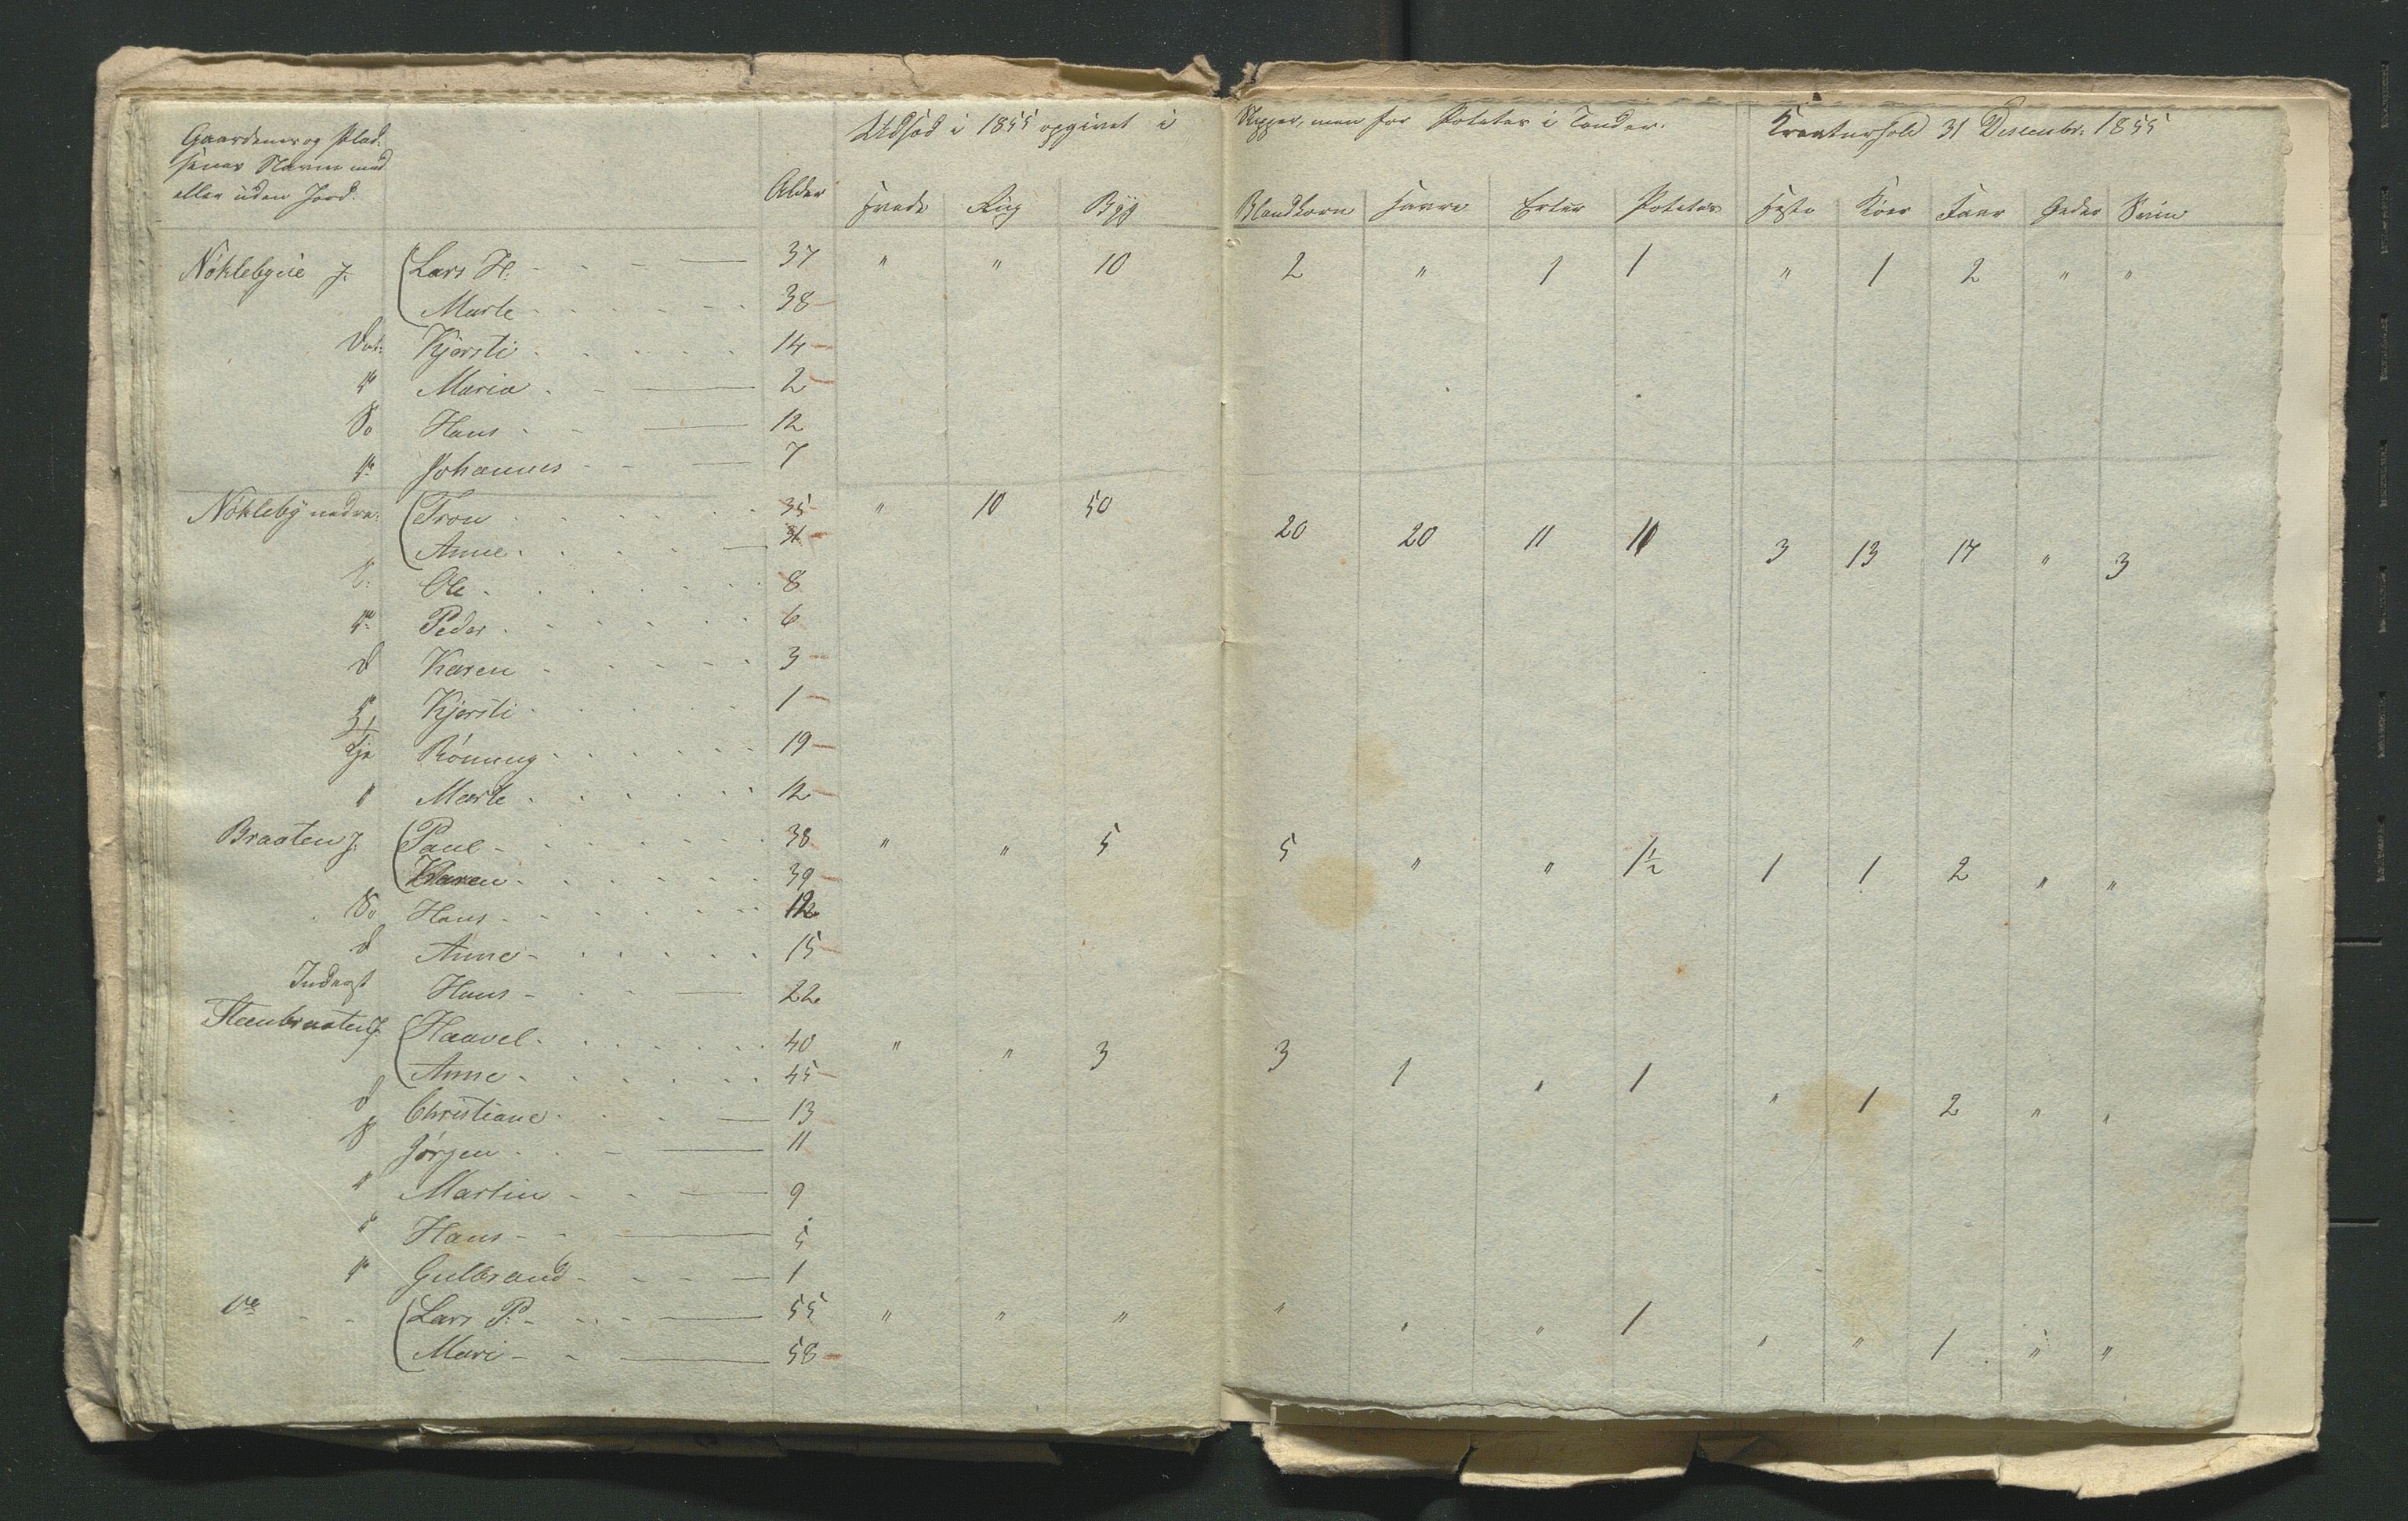 Gaardenes og Plad-
senes Navne med
eller uden Jord.
Alder
Udsæd i 1855 opgivet i Skjæpper, men for Poteter i Tønder.
Kreaturhold 31 Descembr. 1855
Hvede Rug Byg Blandkorn Havre Erter Poteter Heste Køer Faar Geder Sviin
Nøklebyeie J. Lars H. 37 " " 10 2 " 1 1 " 1 2 " "
Marte 38
Dat: Kjersti 14
" Maria 2
So Hans 12
" Johannes 7
Nøkleby nedre Tron 35 " 10 50 20 20 11 10 3 13 17 " 3
Anne
S: Ole 8
" Peder 6
d Karen 3
" Kjersti 1
Tje Rønnug 19
" Marte 12
Braaten J. Paul 38 " " 5 5 " " 1½ 1 1 2 " "
Karen 39
So Hans 12
d Anne 15
Inderst Hans 22
Steenbraaten J. Haavel 40 " " 3 3 1 " 1 " 1 2 " "
Anne 45
d Christiane 13
S Jørgen 11
" Martin 9
" Hans 5
" Gulbrand 1
Lars P. 55 " " " " " " 1 " " 1 " "
Mari 58